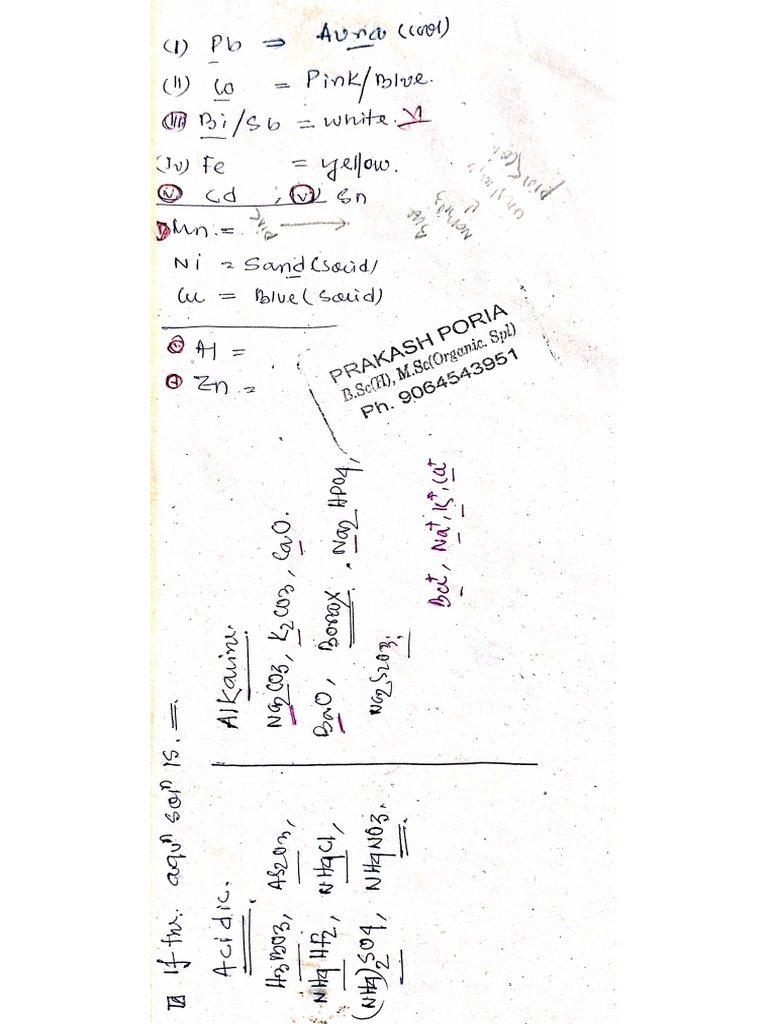 (I) Pb ⇒ (cool)
(II) Co = Pink/Blue.
(III) Bi/Sb = White.
(IV) Fe = yellow.
(V) Cd ; (VI) Sn
Mn = Pink →
Ni = Sand (solid)
Cu = Blue (solid)
Al =
Zn =
PRAKASH PORIA
B.Sc(H), M.Sc(Organic. Spl)
Ph. 9064543951
If the. aquⁿ solⁿ is.
Acidic.
H3BO3, AS2O3,
NH4HF2, NH4Cl,
(NH4)2SO4, NH4NO3.
Alkaline.
Na2CO3, K2CO3, CaO.
BaO, Borax. Na2HPO4,
Na2S2O3.
Ba⁺, Na⁺, K⁺, Ca⁺